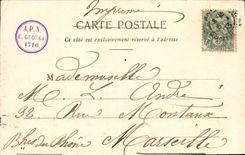 Imprimé
A.P.N.
1716
CARTE POSTALE
Ce côté est exclusivement réservé à l'adresse
Mademoiselle
M. L. André
32 Rue Montaux
Bches du Rhône Marseille